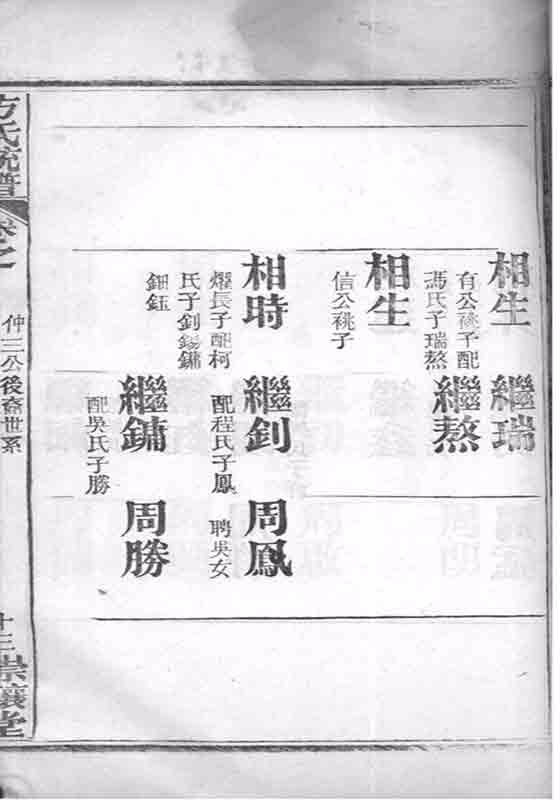 相生
有公祧子配
馮氏子瑞熬
繼瑞
繼熬
相生
信公祧子
相時
燿長子配柯
氏子釗錫鏞
鈿鈺
繼釗
配程氏子鳳
周鳳
聘吳女
繼鏞
配吳氏子勝
周勝
方氏統譜
卷之
仲三公後裔世系
十三
堂